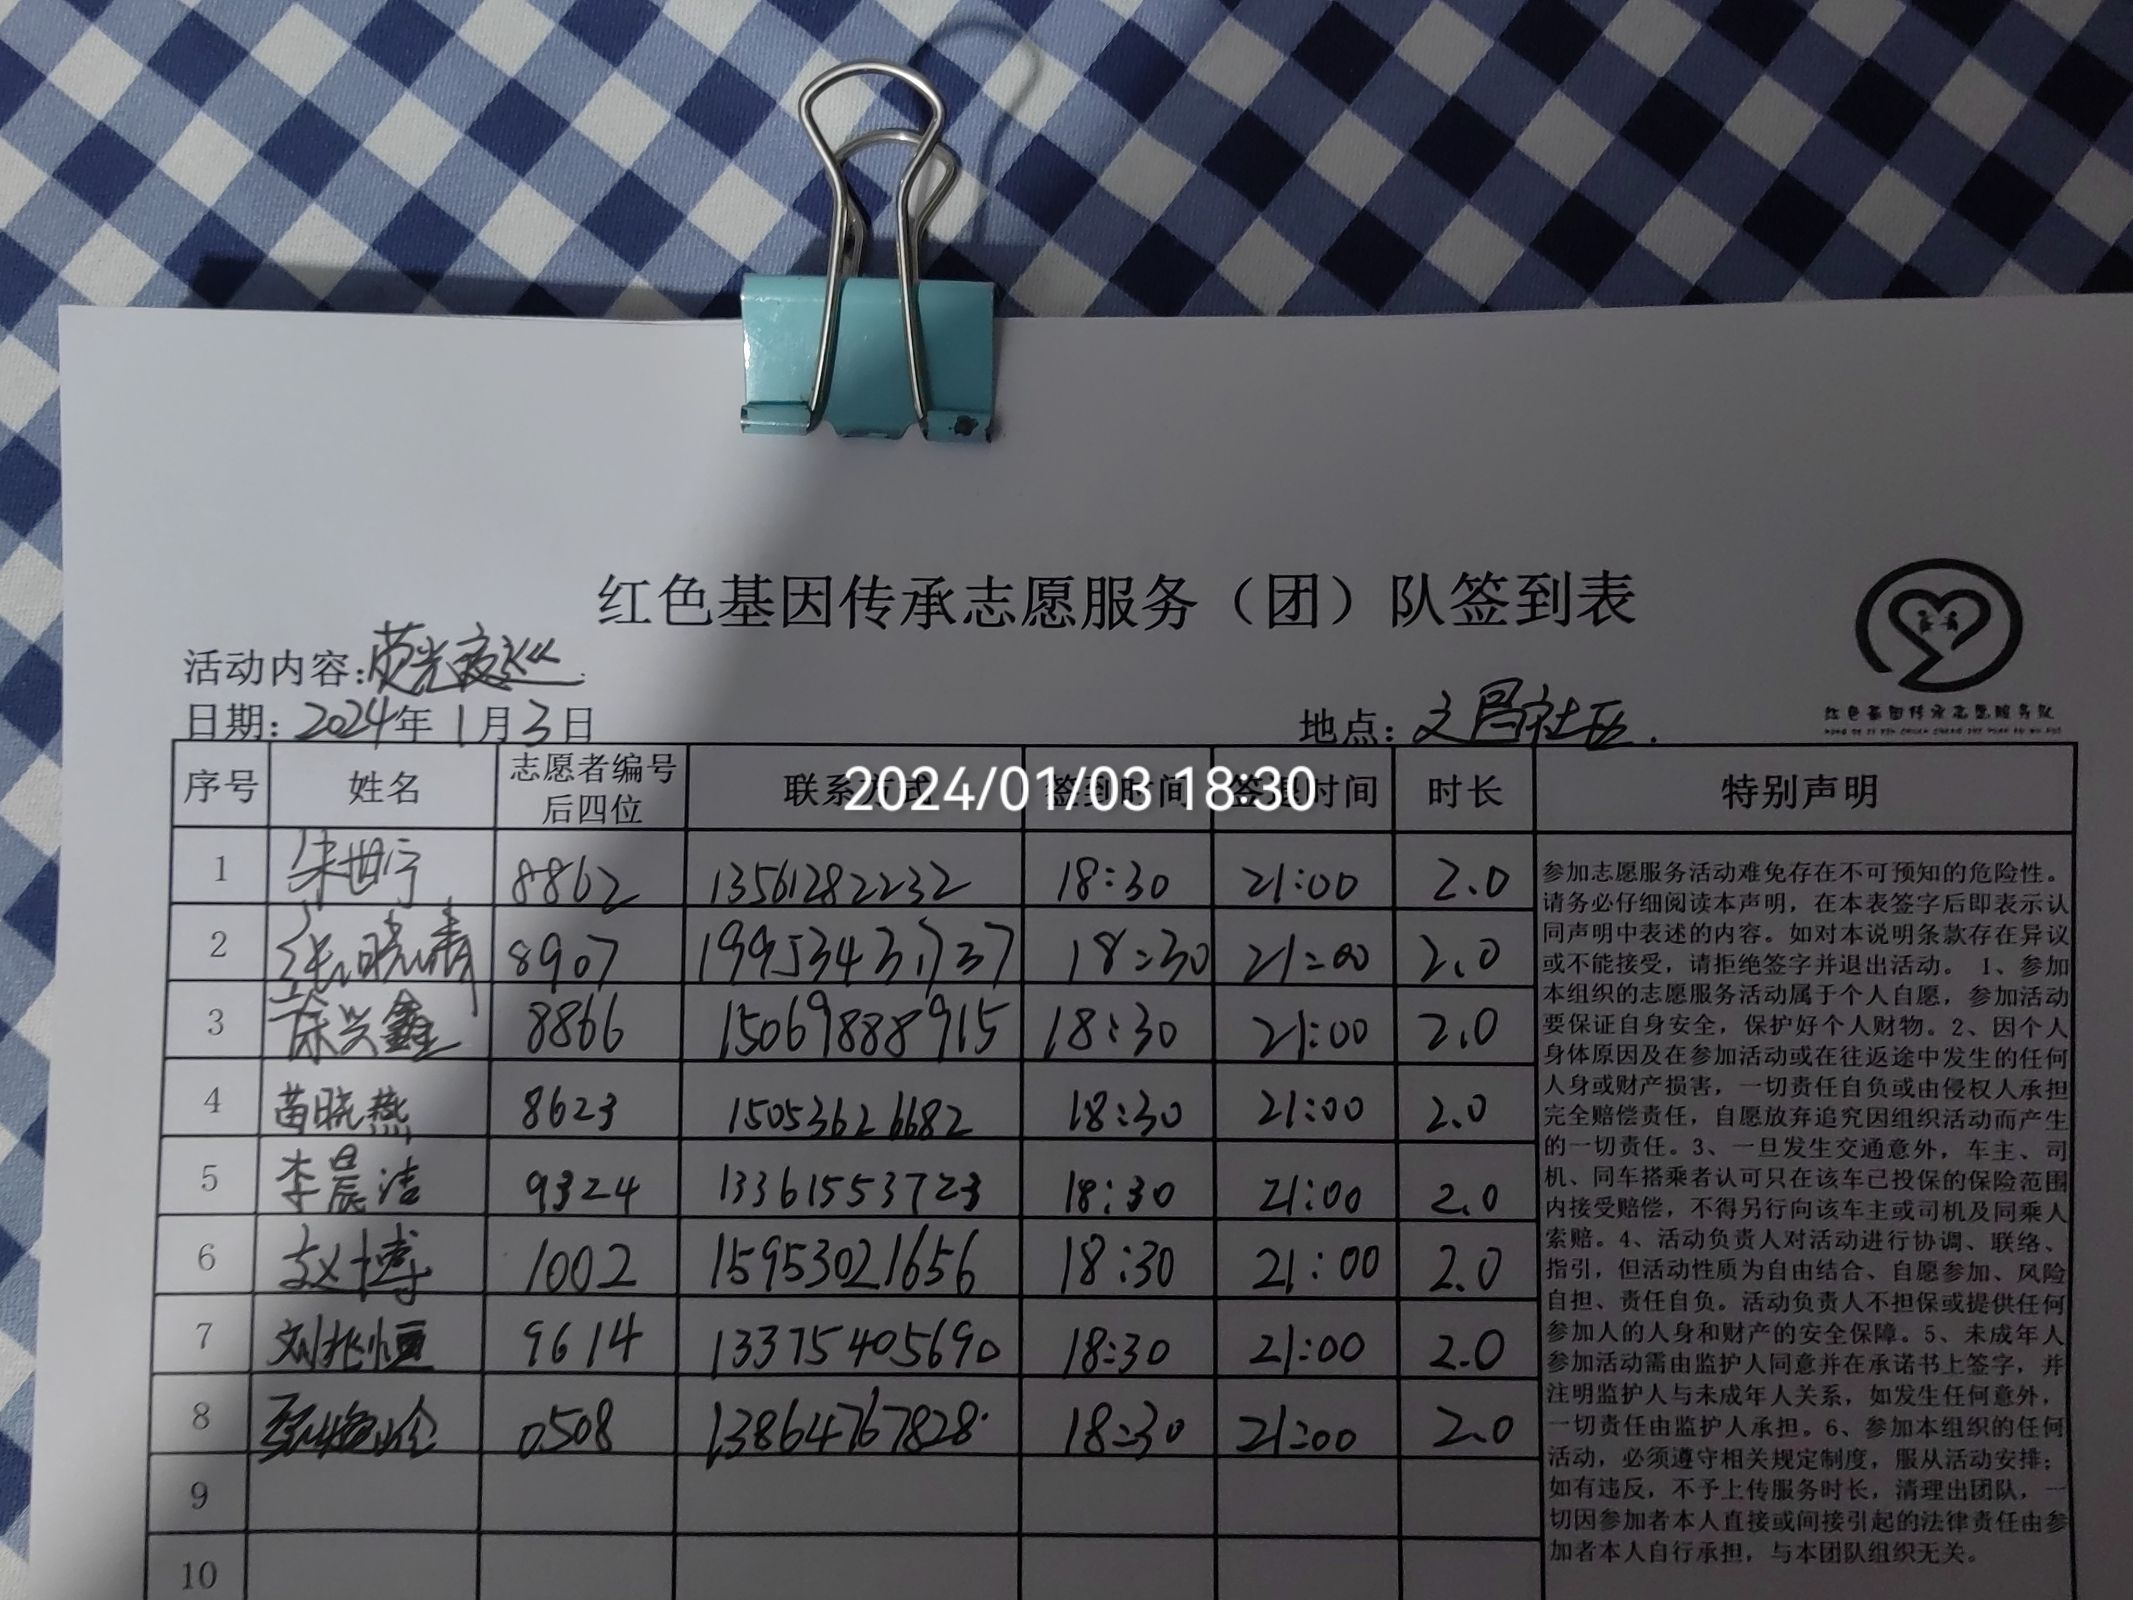 红色基因传承志愿服务（团）队签到表
活动内容：荧光夜巡.
日期：2024年1月3日
地点：文昌社区.
红色基因传承志愿服务队
2024/01/03 18:30
序号 姓名 志愿者编号后四位 联系方式 签到时间 签退时间 时长 特别声明
1 朱世宁 8862 13561282232 18:30 21:00 2.0
2 张晓涛 8907 19953431737 18:30 21:00 2.0
3 徐兴鑫 8866 15069888915 18:30 21:00 2.0
4 苗晓燕 8623 15053626682 18:30 21:00 2.0
5 李晨洁 9324 13361553723 18:30 21:00 2.0
6 赵博 1002 15953021656 18:30 21:00 2.0
7 刘兆恒 9614 13375405690 18:30 21:00 2.0
8 0508 13864767828 18:30 21:00 2.0
9
10
参加志愿服务活动难免存在不可预知的危险性。
请务必仔细阅读本声明，在本表签字后即表示认
同声明中表述的内容。如对本说明条款存在异议
或不能接受，请拒绝签字并退出活动。 1、参加
本组织的志愿服务活动属于个人自愿，参加活动
要保证自身安全，保护好个人财物。2、因个人
身体原因及在参加活动或在往返途中发生的任何
人身或财产损害，一切责任自负或由侵权人承担
完全赔偿责任，自愿放弃追究因组织活动而产生
的一切责任。3、一旦发生交通意外，车主、司
机、同车搭乘者认可只在该车已投保的保险范围
内接受赔偿，不得另行向该车主或司机及同乘人
索赔。4、活动负责人对活动进行协调、联络、
指引，但活动性质为自由结合、自愿参加、风险
自担、责任自负。活动负责人不担保或提供任何
参加人的人身和财产的安全保障。5、未成年人
参加活动需由监护人同意并在承诺书上签字，并
注明监护人与未成年人关系，如发生任何意外，
一切责任由监护人承担。6、参加本组织的任何
活动，必须遵守相关规定制度，服从活动安排；
如有违反，不予上传服务时长，清理出团队，一
切因参加者本人直接或间接引起的法律责任由参
加者本人自行承担，与本团队组织无关。